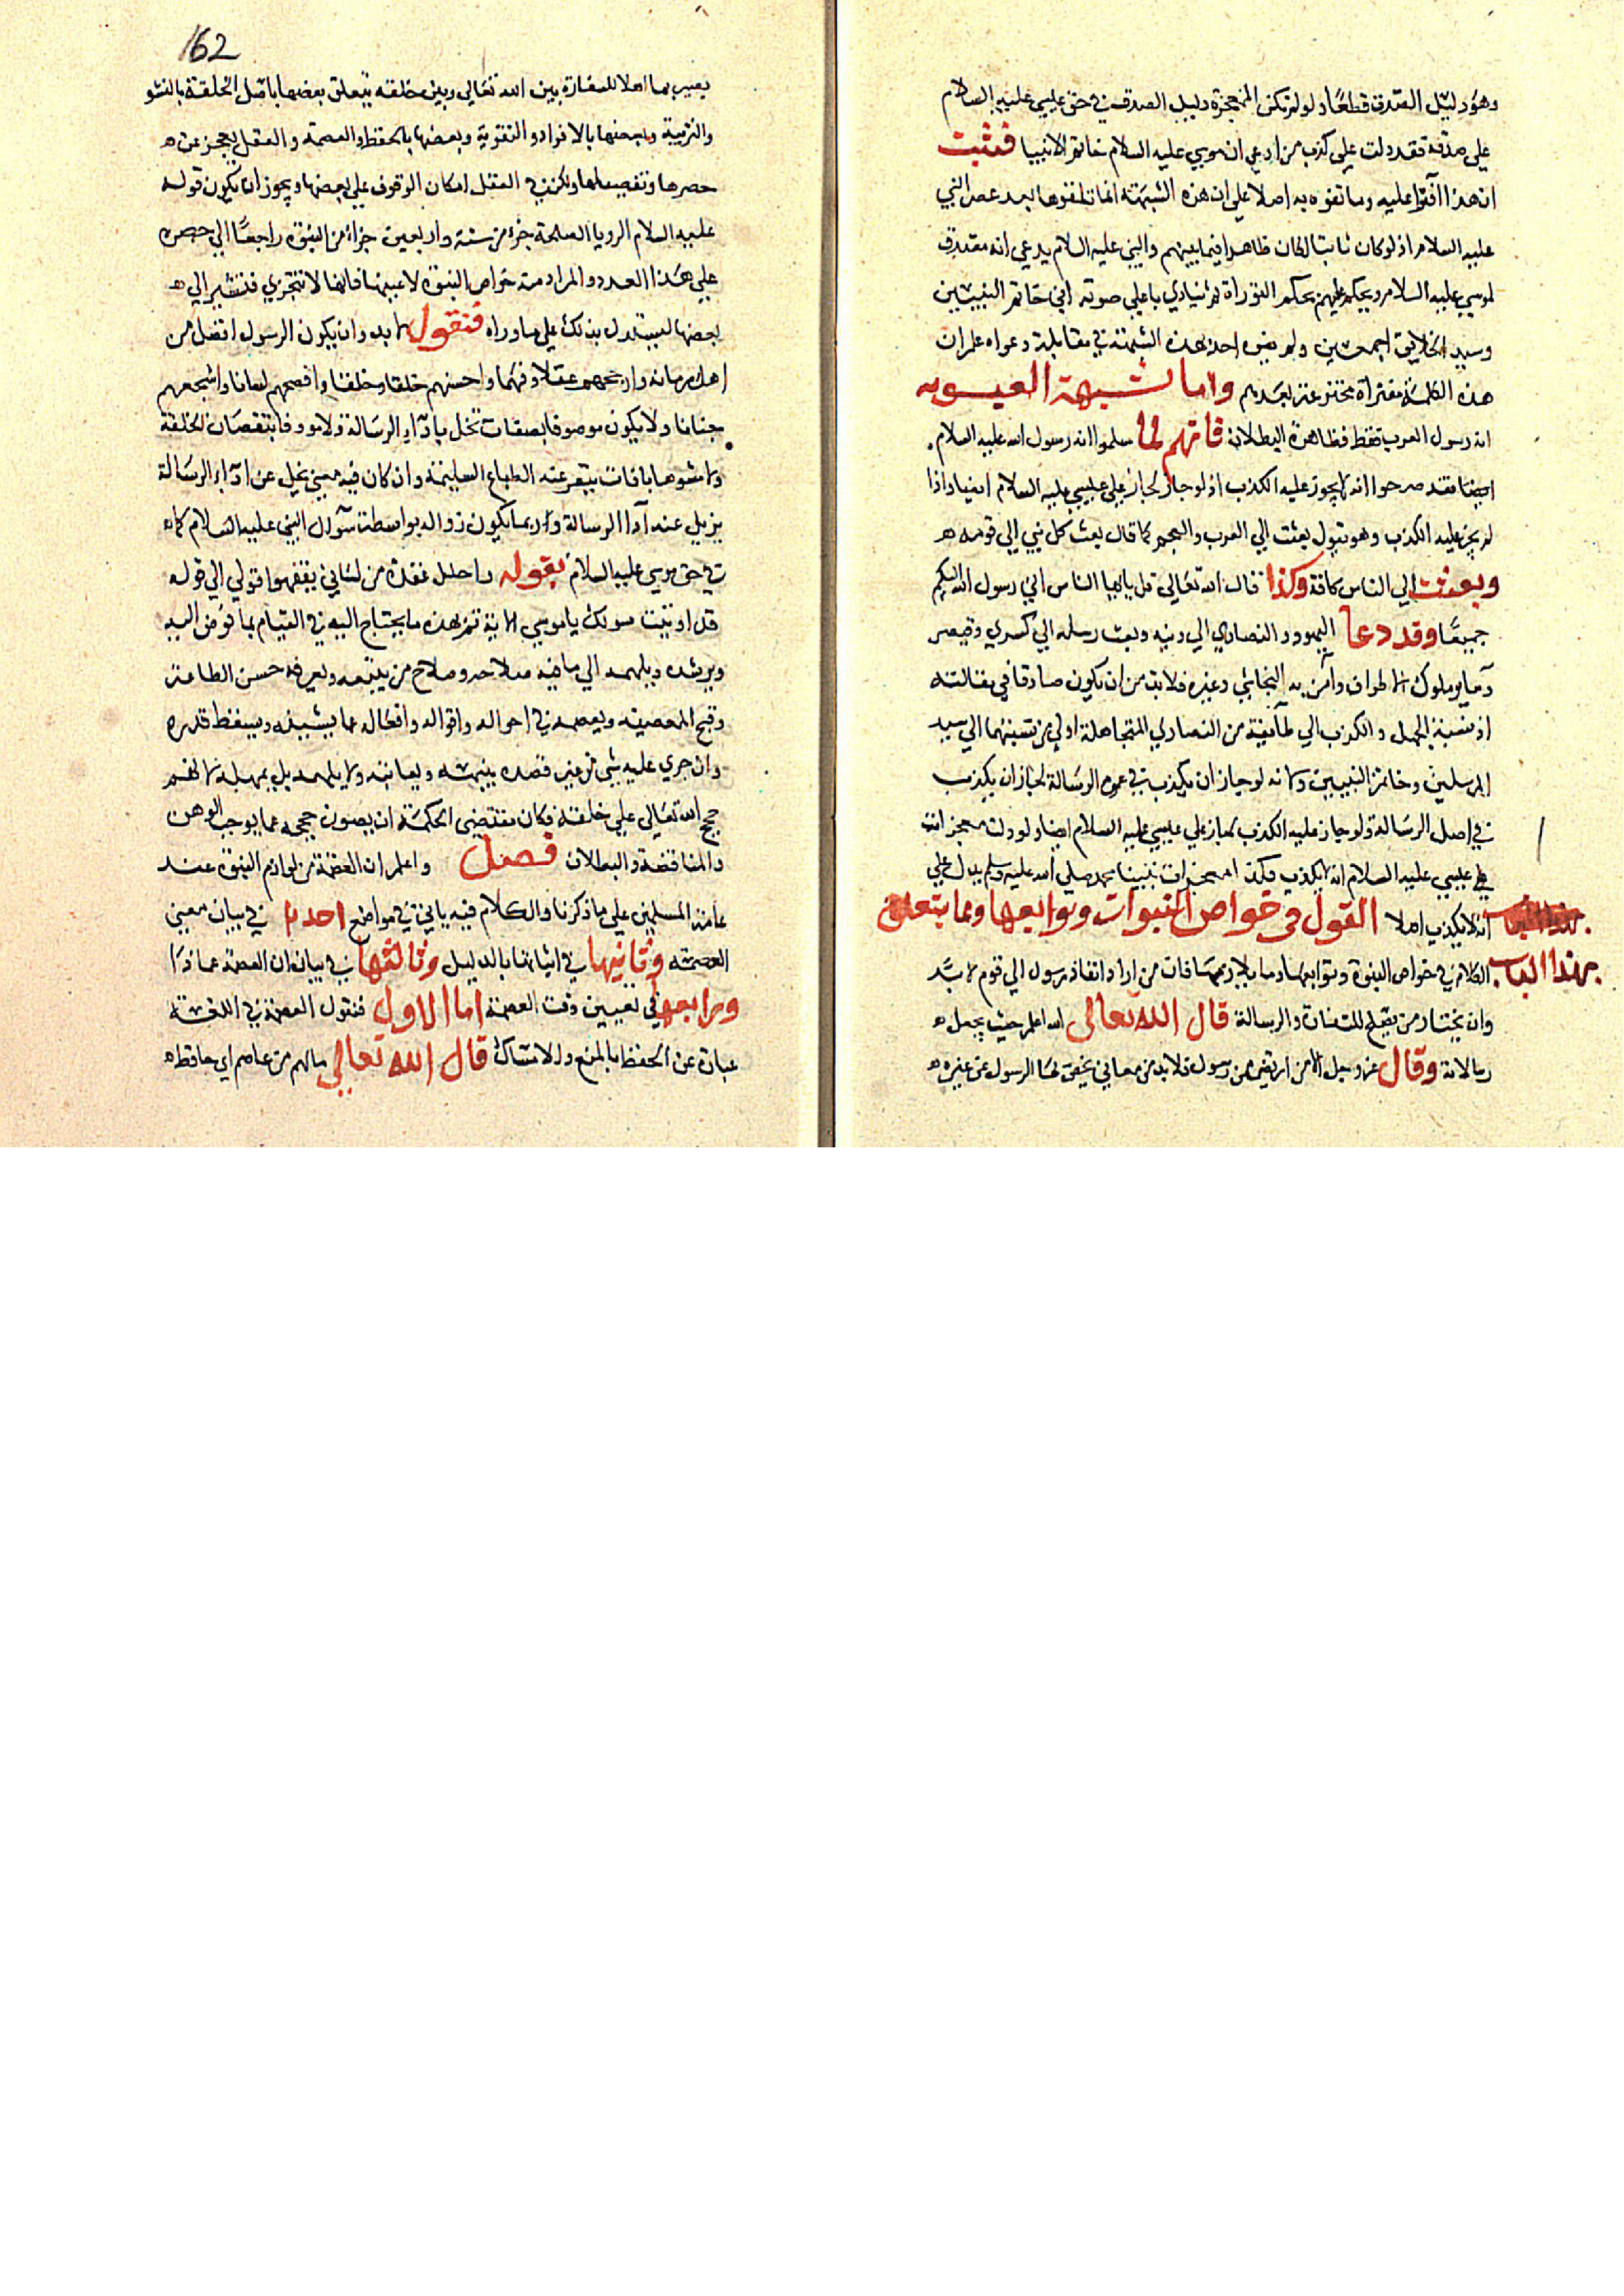 وهو دليل الصدق قطعا ولو لم تكن المعجزة دليل الصدق في حق عيسي عليه السلام
علي صدقه فقد دلت علي كذب من ادعي ان موسي عليه السلام خاتم الانبيا فثبت
ان هذا افترا عليه وما تفوه به اصلا علي ان هذه الشبهة انما تلقنوها بعد عصر النبي
عليه السلام اذ لو كان ثابتا لكان ظاهرا فيما بينهم والنبي عليه السلام يدعي انه مصدق
لموسي عليه السلام ويحكم عليهم بحكم التوراة ثم ينادي باعلي صوته اني خاتم النبيين
وسيد الخلايق اجمعين ولم احد بهذه الشبهة في مقابلة دعواه علم ان
هذه الكلمة مفتراة مخترعة بعدهم واما شبهة العيسويه
انه رسول العرب فقط فظاهرة البطلان فانهم لما سلموا انه رسول الله عليه السلام
ايضا فقد صرحوا انه لا يجوز عليه الكذب اذ لو جاز لجاز علي عيسي عليه السلام ايضا واذا
لم يجز عليه الكذب وهو يقول بعثت الي العرب والعجم كما قال بعث كل نبي الي قومه ه
وبعثت الي الناس كافة وكذا قال الله تعالي قل يا ايها الناس اني رسول الله اليكم
جميعا وقد دعا اليهود والنصاري الي دينه وبعث رسله الي كسري وقيصر
وساير ملوك الاطراف وآمن به النجاشي وغيره فلا بد من ان يكون صادقا في مقالته
اذ نسبة الجهل والكذب الي طآيفة من النصاري المتجاهلة اولي من نسبتهما الي سيد
المرسلين وخاتم النبيين ولانه لو جاز ان يكذب في عموم الرسالة لجاز ان يكذب
في اصل الرسالة ولو جاز عليه الكذب لجاز علي عيسي عليه السلام ايضا ولو دلت معجزات
علي عيسي عليه السلام انه لا يكذب فكذا معجزات نبينا محمد صلي الله عليه وسلم يدل علي
انه لا يكذب اصلا القول في خواص النبوات وتوابعها وما يتعلق
بهذا الباب الكلام في خواص النبوة وتوابعها وما من اراد انفاذ رسول الي قوم لا بد
وان يختار من يصلح للسفارة والرسالة قال الله تعالي الله اعلم حيث يجعل ه
رسالاته وقال عز وجل الا من ارتضي من رسول فلا بد من معاني يختص بها الرسول عن غيره ه
162
يصير بها اهلا للسفارة بين الله تعالي وبين خلقه يتعلق بعضها باصل الخلقة بالنشو
والتربية وبعضها بالافراد والتقوية وبعضها بالحفظ والعصمة والعقل يعجز عن ه
حصرها وتفصيلها ولكن في العقل امكان الوقوف علي بعضها ويجوز ان يكون قوله
عليه السلام الرويا الصالحة جزء من ستة واربعين جزاء من النبوة راجعا الي حصره
علي هذا العدد والمراد منه خواص النبوة لا عينها فانها لا تتجزي فنشير الي ه
بعضها ليستدل بذلك علي ما وراه فنقول لا بد وان يكون الرسول افضل من
اهل زمانه وارجحهم عقلا وفهما واحسنهم خلقا وخلقا وافصحهم لسانا واشجعهم
جنانا ولا يكون موصوفا بصفات تخل بادآء الرسالة ولا مووفا بنقصان الخلقة
ولا مشوها بافات ينفر عنه الطباع السليمة وان كان فيه معني يخل عن ادآء الرسالة
يزيل عنه ادآ الرسالة وربما يكون زواله بواسطة سؤال النبي عليه السلام كما ه
في حق موسي عليه السلام بقوله واحلل عقدة من لساني يفقهوا قولي الي قوله
قد اوتيت سولك يا موسي الاية ثم يمده ما يحتاج اليه في القيام بما فوض اليه
ويرشده ويلهمه الي ما فيه صلاحه وصلاح من يتبعه ويعرفه حسن الطاعة
وقبح المعصية ويعصمه في احواله واقواله وافعاله عما يشينه ويسقط قدره
وان جري عليه شي من غير قصده ينبهه ويعاتبه ولا يهمله بل لا يمهله لانهم
حجج الله تعالي علي خلقه فكان مقتضي الحكمة ان يصون حججه عما يوجب الوهن
والمناقضة والبطلان فصل واعلم ان العصمة من لوازم النبوة عند
عامة المسلمين علي ما ذكرنا والكلام فيه ياتي في مواضع احدها في بيان معني
العصمة وثانيها في اثباتها بالدليل وثالثها في بيان ان العصمة عما ذا
ورابعها في تعيين وقت العصمة اما الاول فنقول العصمة في اللغة
عبارة عن الحفظ بالمنع والامساك قال الله تعالي ما لهم من عاصم اي حافظ ه